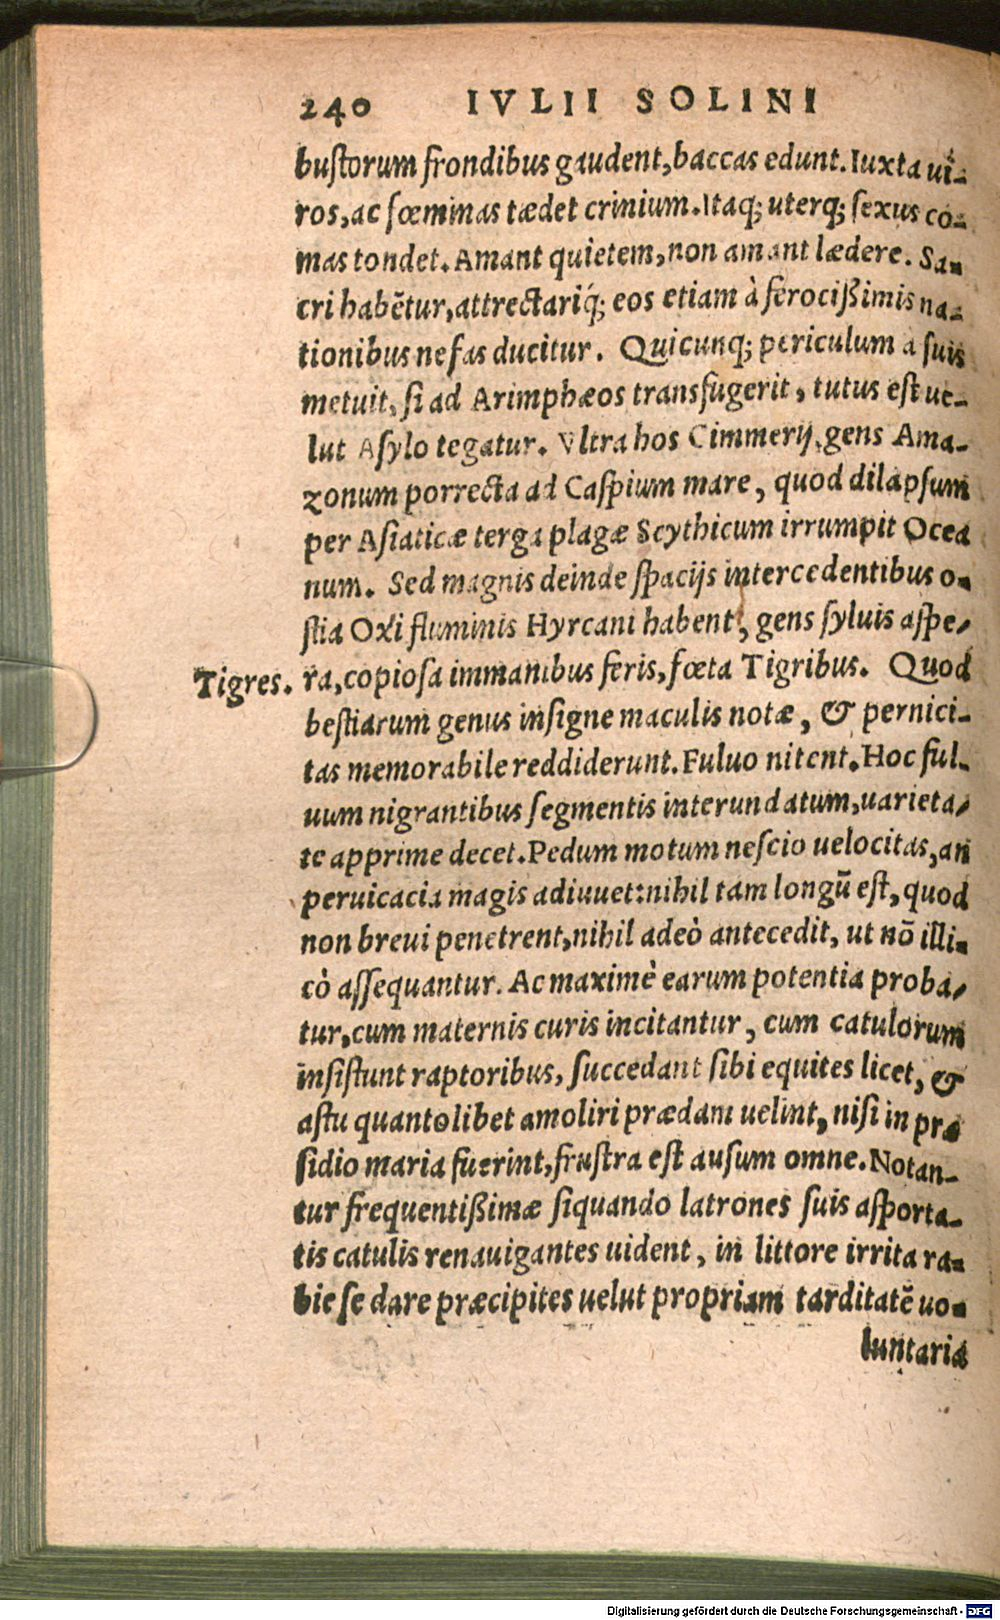 240 IVLII SOLINI
bustorum frondibus gaudent, baccas edunt. Iuxta ui-
ros, ac fœminas tædet crinium. Itaq; uterq; sexus co-
mas tondet. Amant quietem, non amant lædere. Sa-
cri habẽtur, attrectariq́; eos etiam à ferocißimis na-
tionibus nefas ducitur. Quicunq; periculum à suis
metuit, si ad Arimphæos transfugerit, tutus est ue-
lut Asylo tegatur. Vltra hos Cimmerij, gens Ama-
zonum porrecta ad Caspium mare, quod dilapsum
per Asiaticæ terga plagæ Scythicum irrumpit Ocea
num. Sed magnis deinde spacijs intercedentibus o-
stia Oxi fluminis Hyrcani habent, gens syluis aspe-
Tigres. ra, copiosa immanibus feris, fœta Tigribus. Quod
bestiarum genus insigne maculis notæ, & pernici-
tas memorabile reddiderunt. Fuluo nitent. Hoc ful-
uum nigrantibus segmentis interundatum, uarieta-
te apprime decet. Pedum motum nescio uelocitas, an
peruicacia magis adiuuet: nihil tam longũ est, quod
non breui penetrent, nihil adeò antecedit, ut nõ illi-
cò assequantur. Ac maximè earum potentia proba-
tur, cum maternis curis incitantur, cum catulorum
insistunt raptoribus, succedant sibi equites licet, &
astu quantolibet amoliri prædam uelint, nisi in præ
sidio maria fuerint, frustra est ausum omne. Notan-
tur frequentißimæ siquando latrones suis asporta-
tis catulis renauigantes uident, in littore irrita ra-
bie se dare præcipites uelut propriam tarditatẽ uo-
luntaria
Digitalisierung gefördert durch die Deutsche Forschungsgemeinschaft - DFG